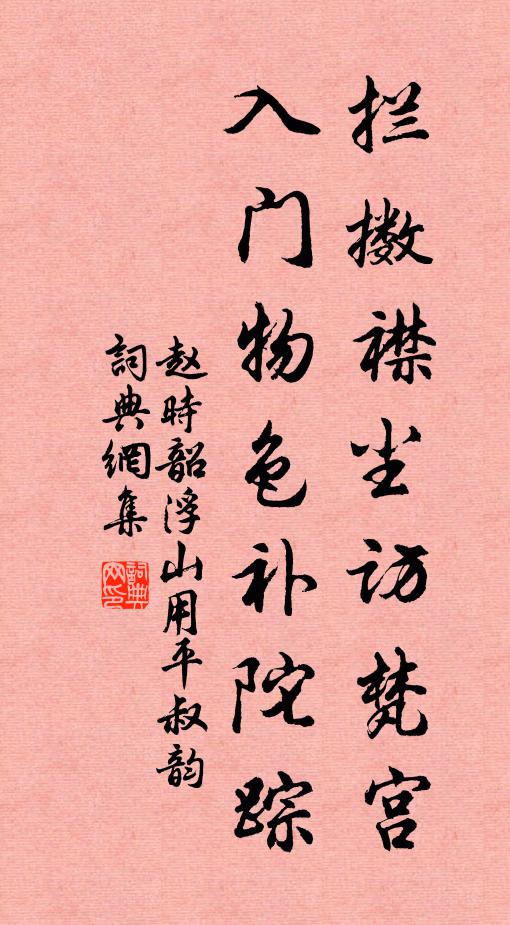 拦擞襟尘访梵宫
入门物色补陀踪
赵時韶浮山用平叔韵
詞典網集
詞典网印